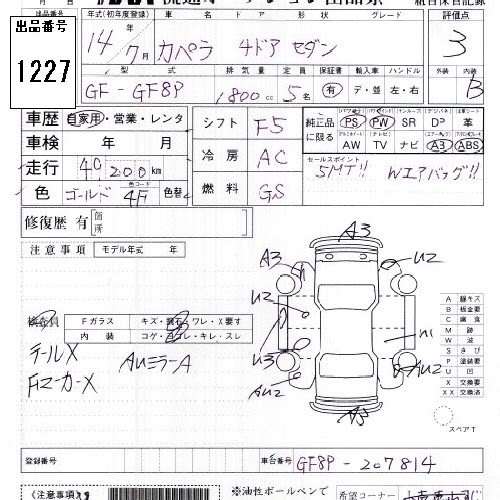 出品番号
1227
年式(初年度登録) 車名 ドア 形状 グレード 評価点
14年7月 カペラ 4ドア セダン 3
型式 排気量 定員 保証書 輸入車 ハンドル 内装
GF-GF8P 1800cc 5名 有 デ・並 左・右 B
車歴 自家用・営業・レンタ シフト F5 純正品に限る PS PW SR DP 革
車検 年 月 冷房 AC AW TV ナビ A3 ABS
走行 40200km 燃料 GS セールスポイント
色 ゴールド 色コード 4F 色替 5MT!! Wエアバッグ!!
修復歴 有 箇所
注意事項 モデル年式 年
A3
A3 U2
U2 A 線キズ
B 板金要
C 腐食
M 跡
W 波
U3 U1 S さび
P 塗装要
U 凹
AU2 AU2 X 交換要
XX 交換済
A3
スペアT
検査員 Fガラス キズ・飛石・ワレ・X要す
内装 コゲ・ヨゴレ・キレ・スレ
テールX AUミラーA
FマーカーX
登録番号 車台番号 GF8P-207814
(注意事項) ※油性ボールペンで 希望コーナー